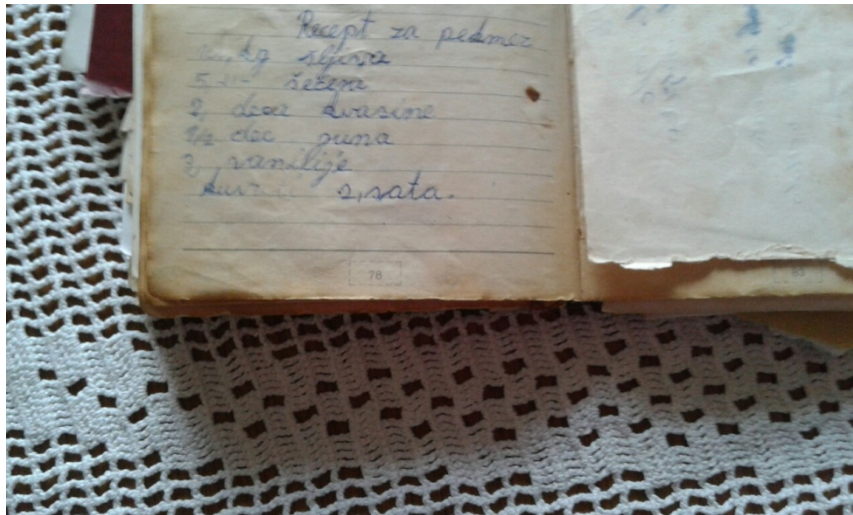 Recept za pekmez
kg šljiva
5, -"- šećera
2, deca kvasine
1/2 dec guna
3, vanilije
2, sata.
78
83